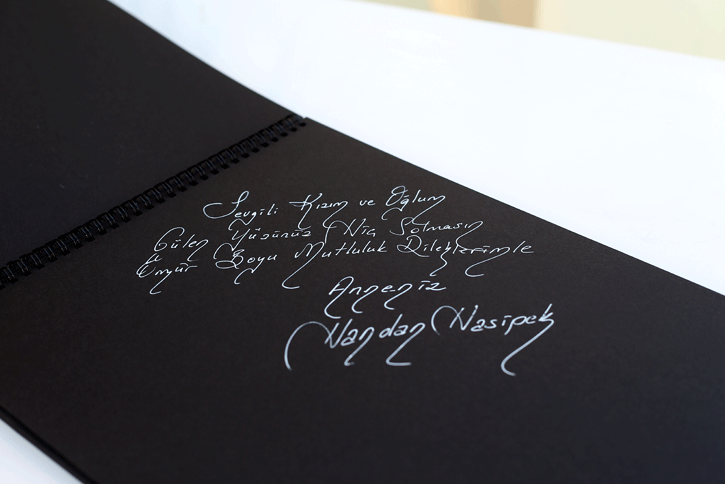 Sevgili Kızım ve Oğlum
Gülen Yüzünüz Hiç Solmasın
Ömür Boyu Mutluluk Dileklerimle
Anneniz
Handan Nasipek